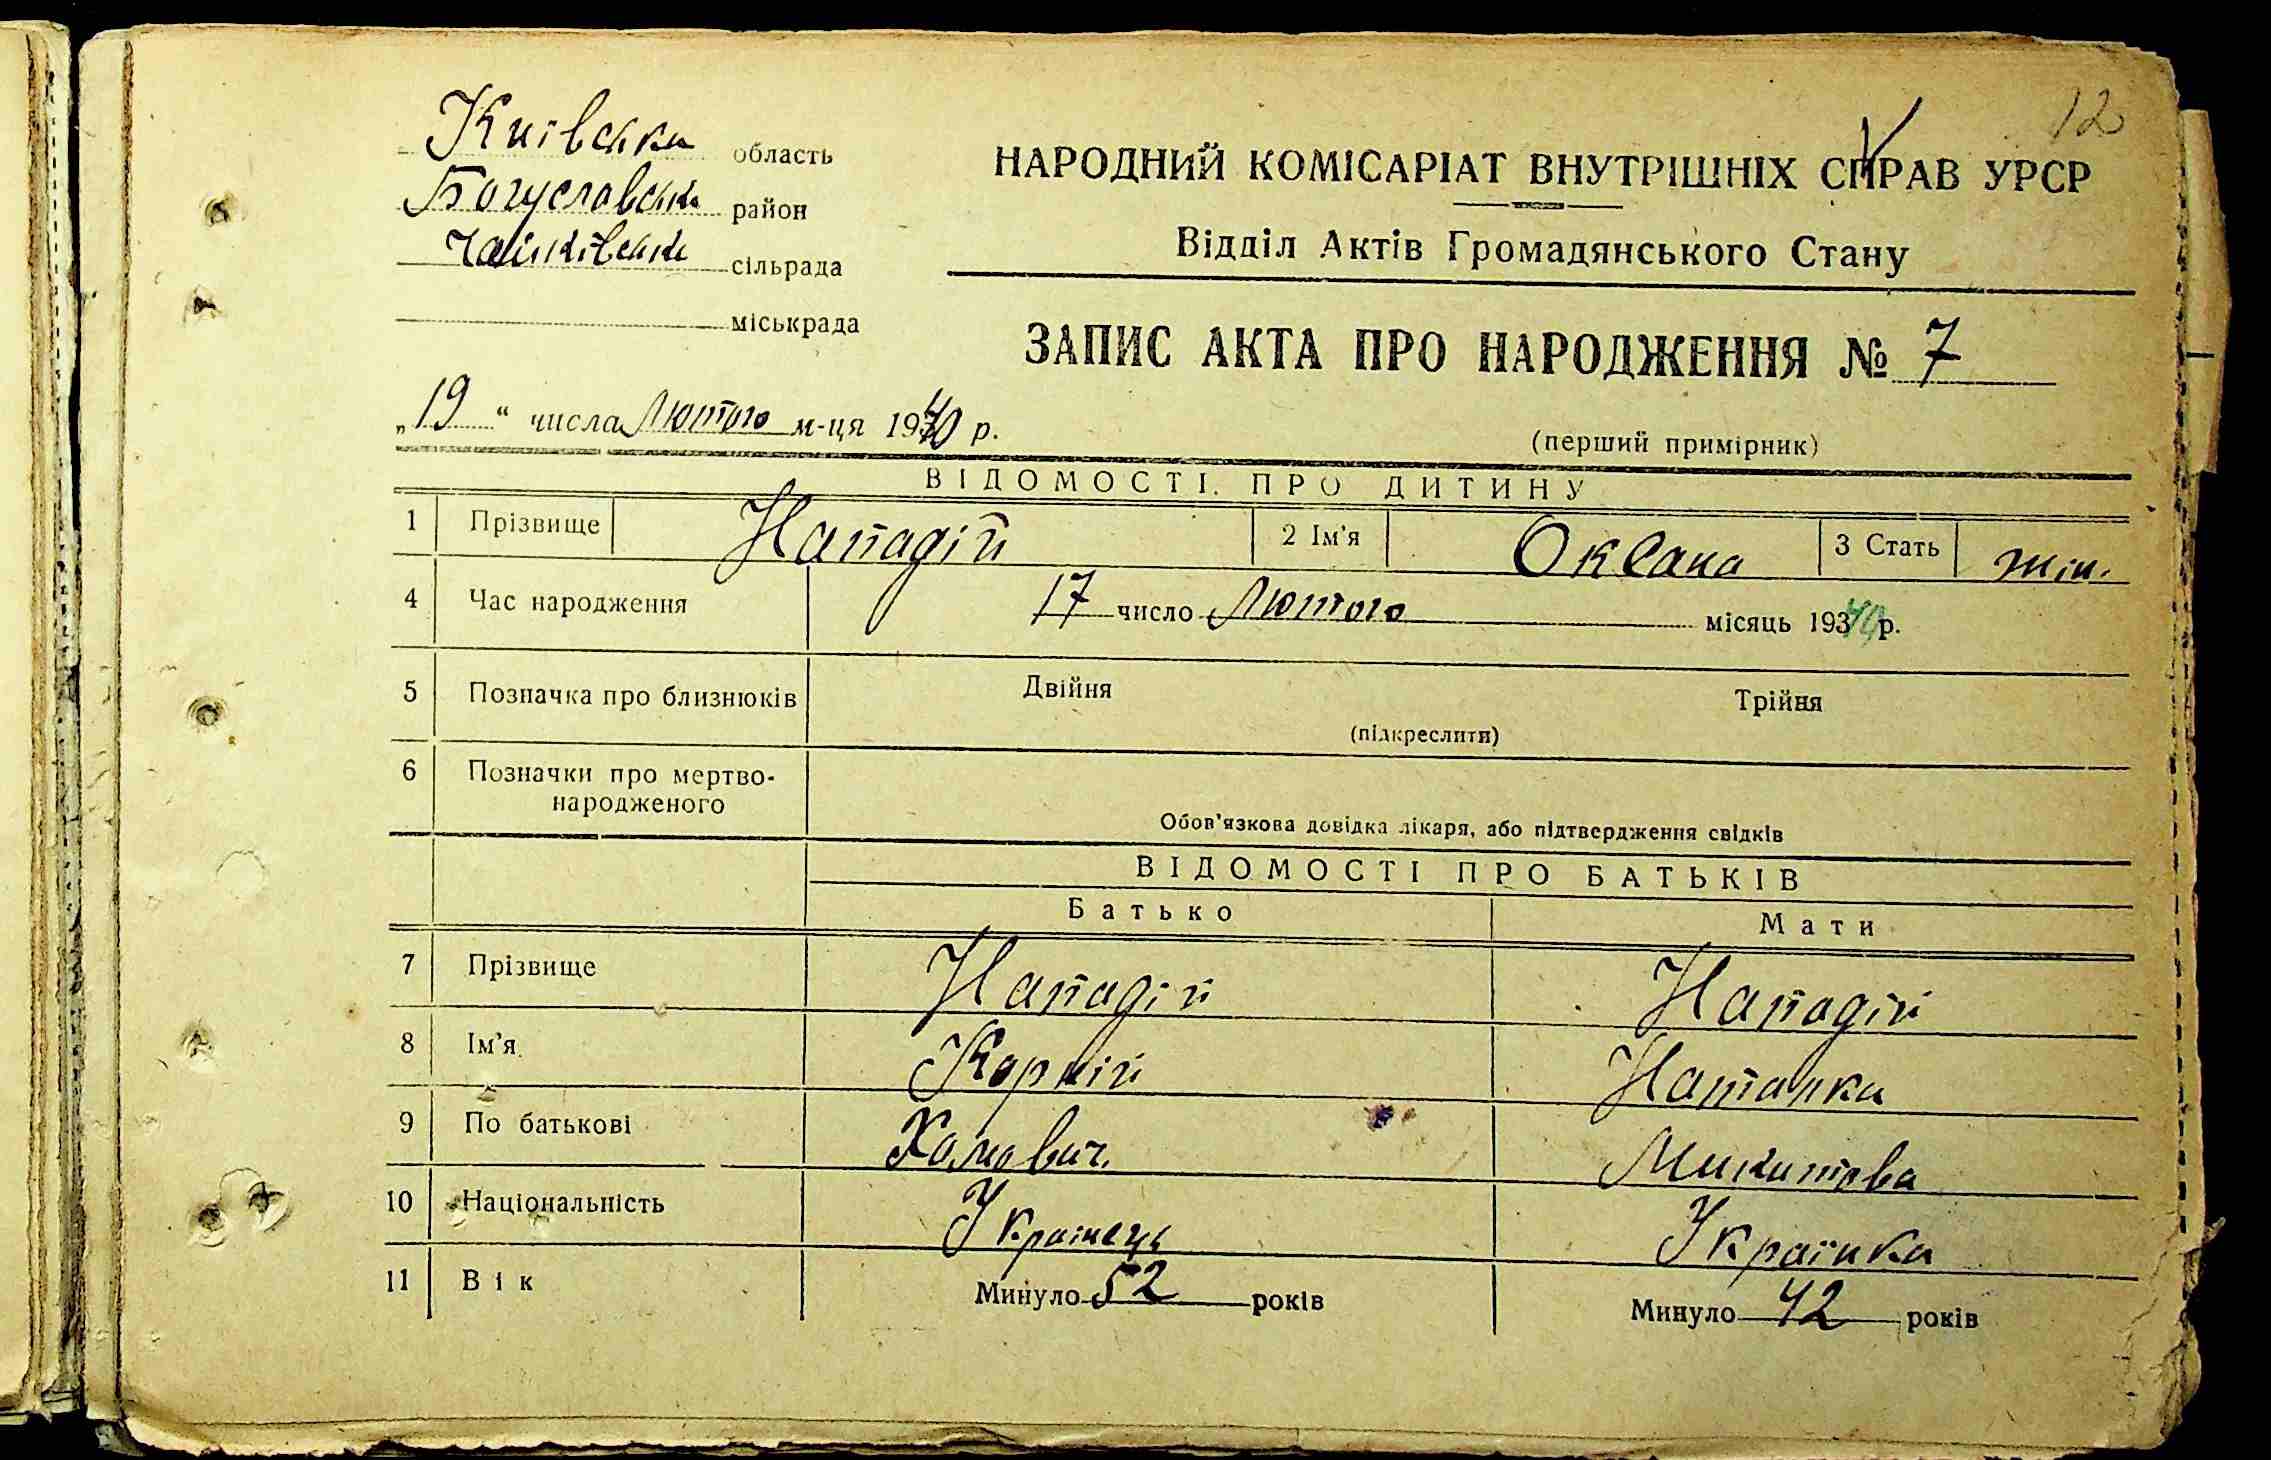 12
Київська область
Богуславська район
Чайківська сільрада
міськрада
НАРОДНИЙ КОМІСАРІАТ ВНУТРІШНІХ СПРАВ УРСР
Відділ Актів Громадянського Стану
ЗАПИС АКТА ПРО НАРОДЖЕННЯ № 7
„19“ числа Лютого м-ця 1940 р.
(перший примірник)
ВІДОМОСТІ ПРО ДИТИНУ
1 Прізвище Нападій 2 Ім'я Оксана 3 Стать жін.
4 Час народження 17 число Лютого місяць 1940 р.
5 Позначка про близнюків Двійня Трійня
(підкреслити)
6 Позначки про мертво-
народженого
Обов'язкова довідка лікаря, або підтвердження свідків
ВІДОМОСТІ ПРО БАТЬКІВ
Батько Мати
7 Прізвище Нападій Нападій
8 Ім'я Корній Наталка
9 По батькові Хомович. Микитова
10 Національність Українець Українка
11 Вік Минуло 52 років Минуло 42 років